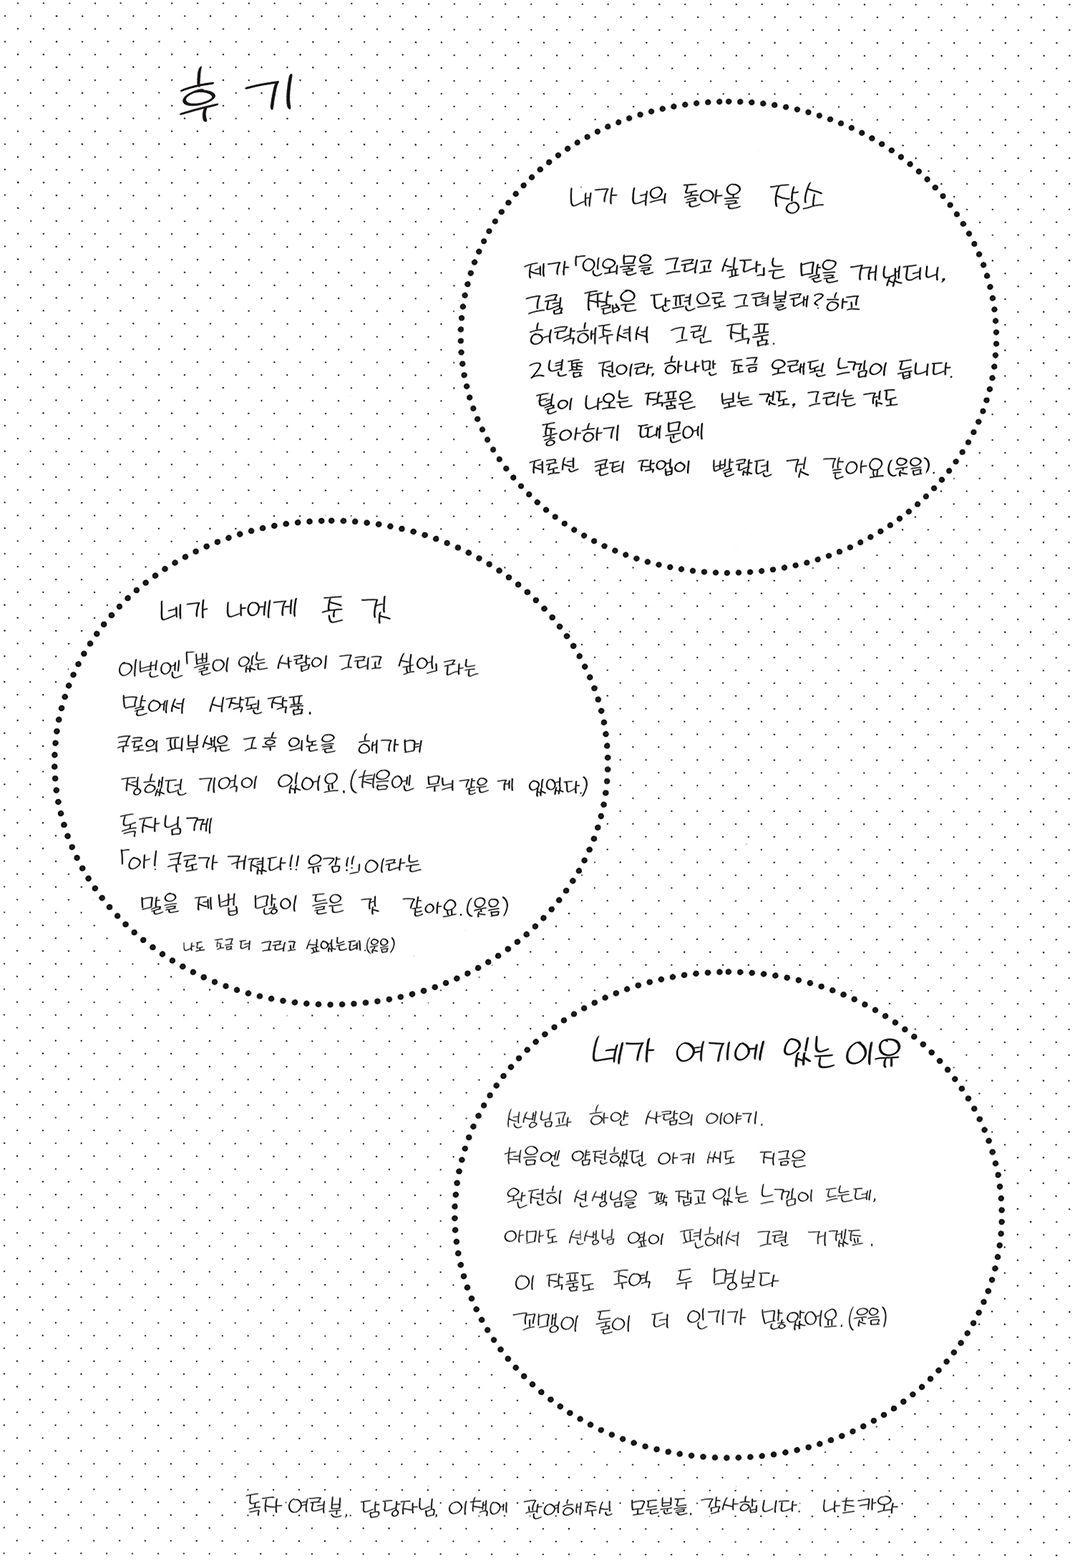 후기
내가 너의 돌아올 장소
제가 「인외물을 그리고 싶다」는 말을 꺼냈더니,
그럼 짧은 단편으로 그려볼래? 하고
허락해주셔서 그린 작품.
2년쯤 전이라, 하나만 조금 오래된 느낌이 듭니다.
털이 나오는 작품은 보는 것도, 그리는 것도
좋아하기 때문에
저로선 콘티 작업이 빨랐던 것 같아요(웃음).
네가 나에게 준 것
이번엔 「뿔이 있는 사람이 그리고 싶어」라는
말에서 시작된 작품.
쿠로의 피부색은 그 후 의논을 해가며
정했던 기억이 있어요.(처음엔 무늬 같은 게 있었다.)
독자님께
「아! 쿠로가 커졌다!! 유감!!」이라는
말을 제법 많이 들은 것 같아요.(웃음)
나도 조금 더 그리고 싶었는데.(웃음)
네가 여기에 있는 이유
선생님과 하얀 사람의 이야기.
처음엔 얌전했던 아키 씨도 지금은
완전히 선생님을 꽉 잡고 있는 느낌이 드는데,
아마도 선생님 옆이 편해서 그런 거겠죠.
이 작품도 주역 두 명보다
꼬맹이 둘이 더 인기가 많았어요.(웃음)
독자 여러분, 담당자님, 이 책에 관여해주신 모든분들, 감사합니다. 나츠카와